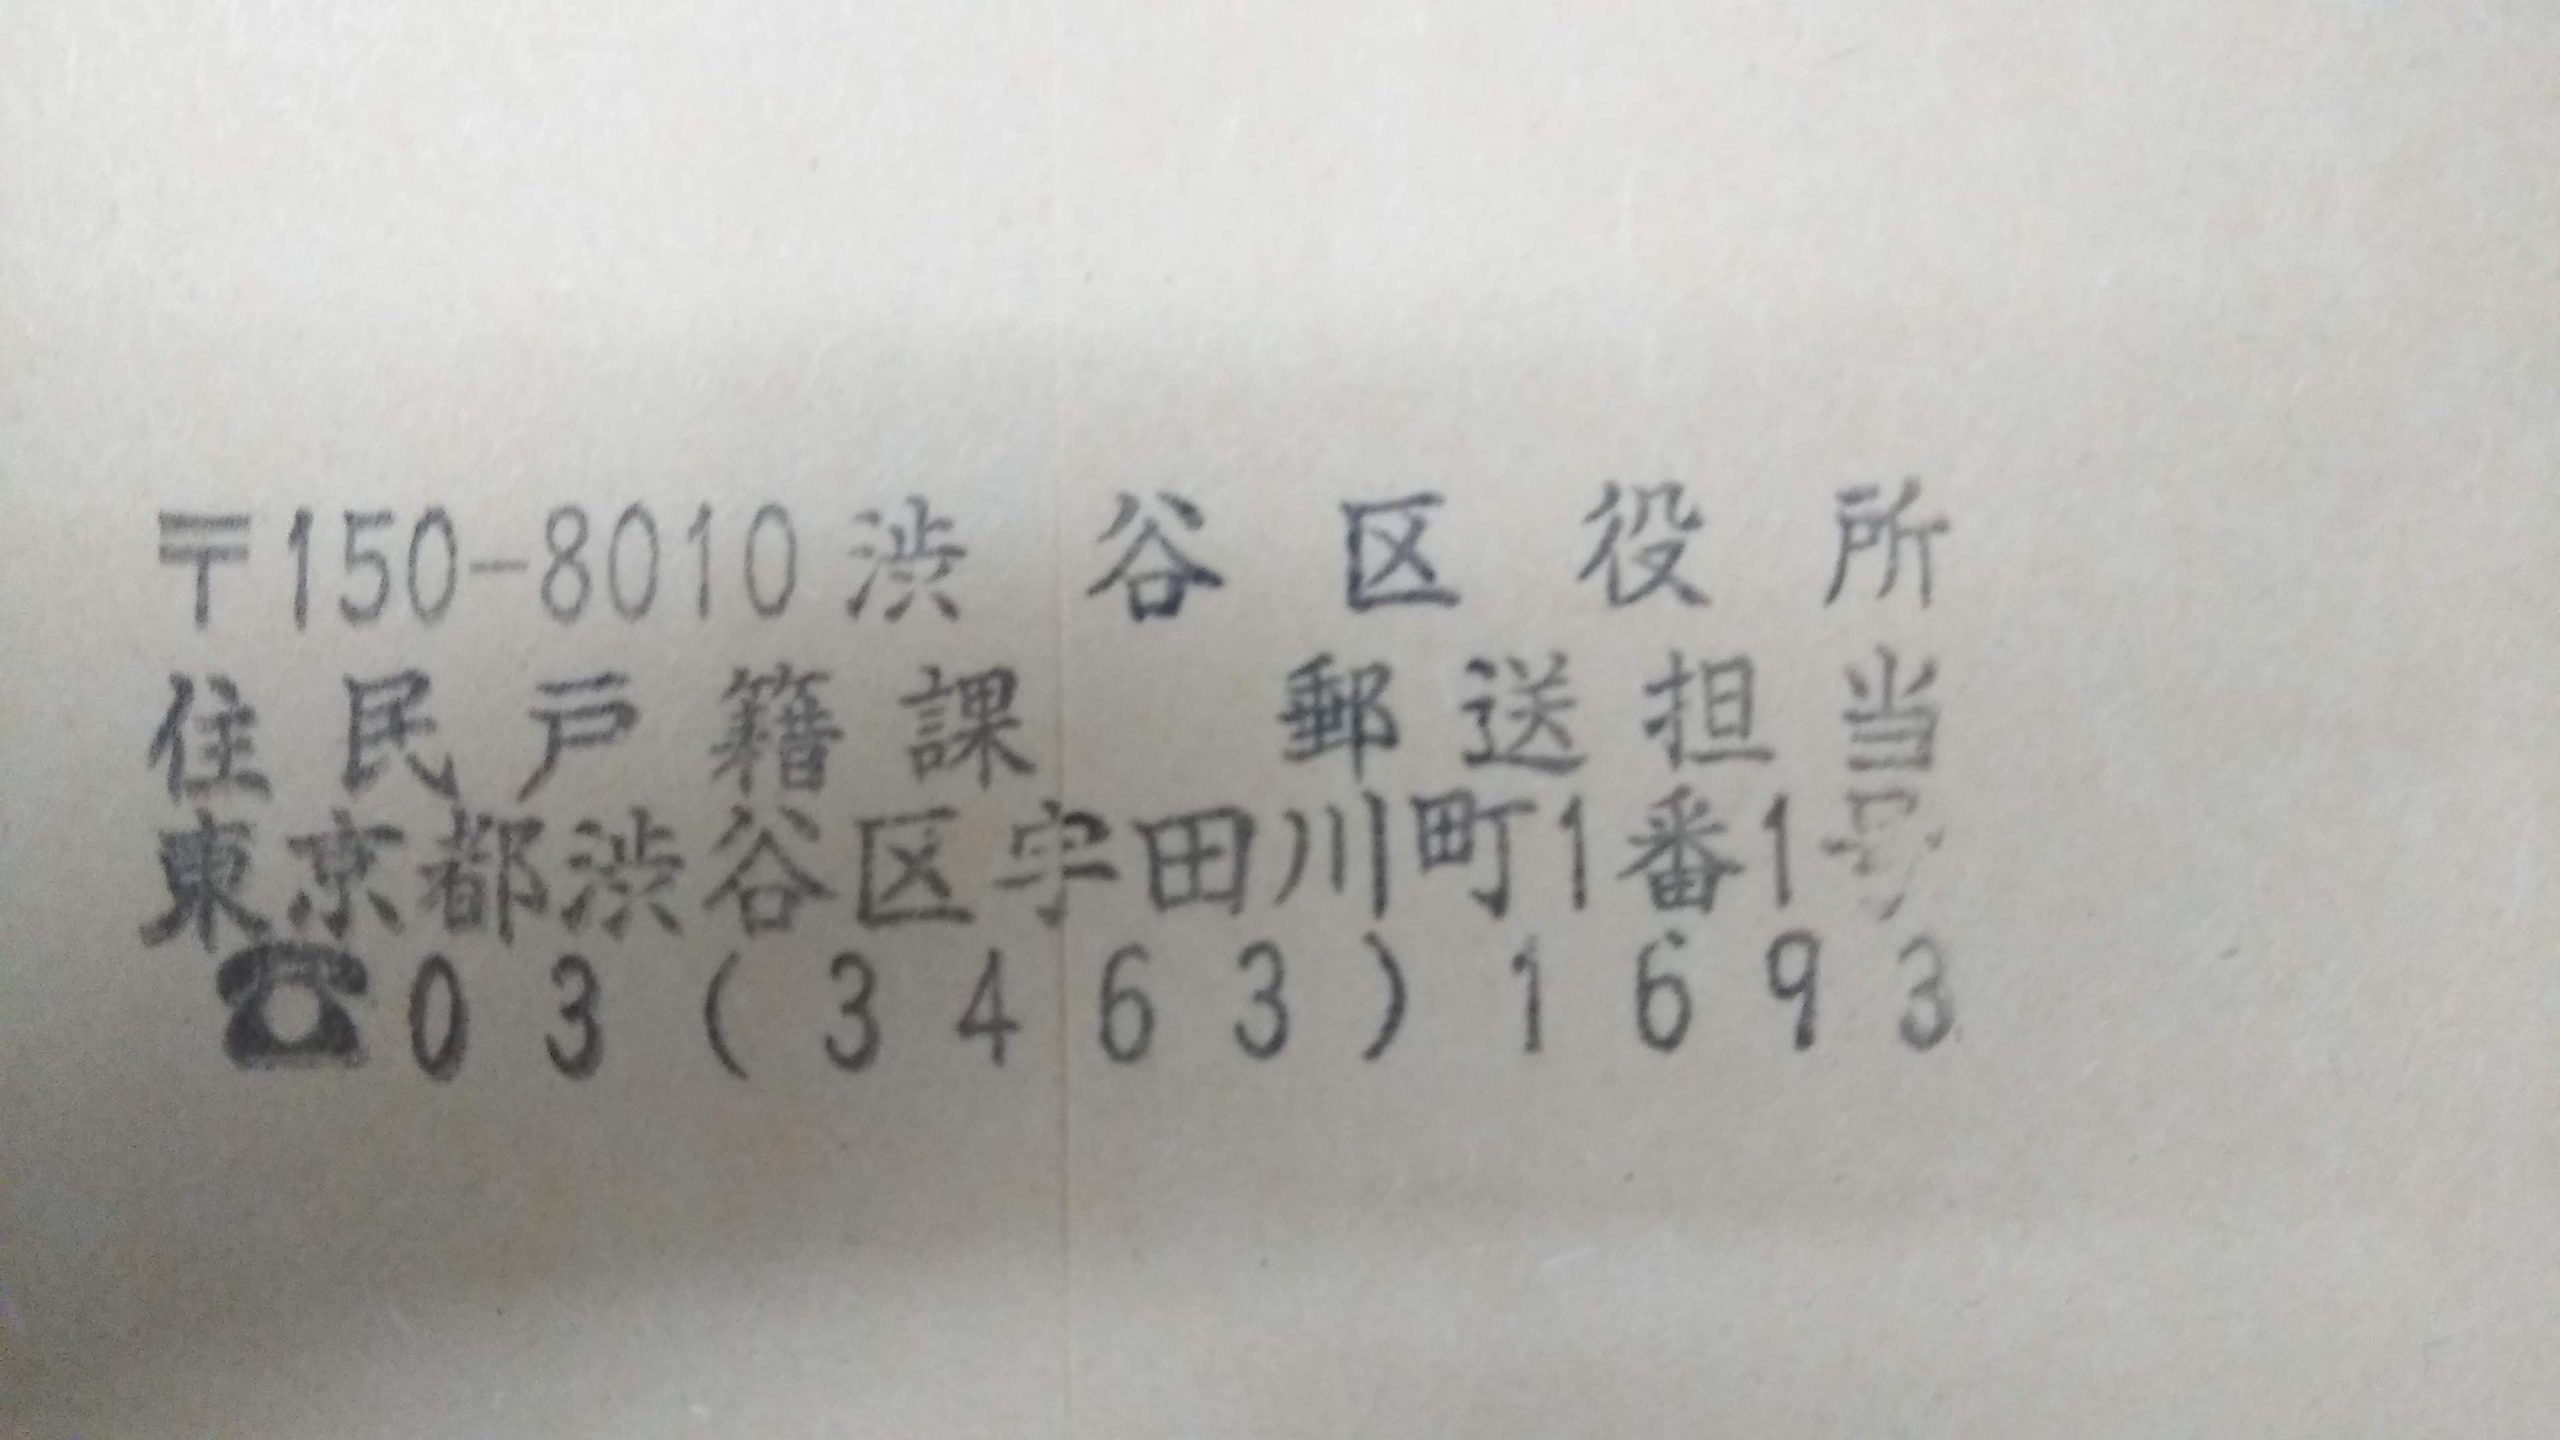 〒150-8010渋谷区役所
住民戸籍課　郵送担当
東京都渋谷区宇田川町1番1号
☎03(3463)1693